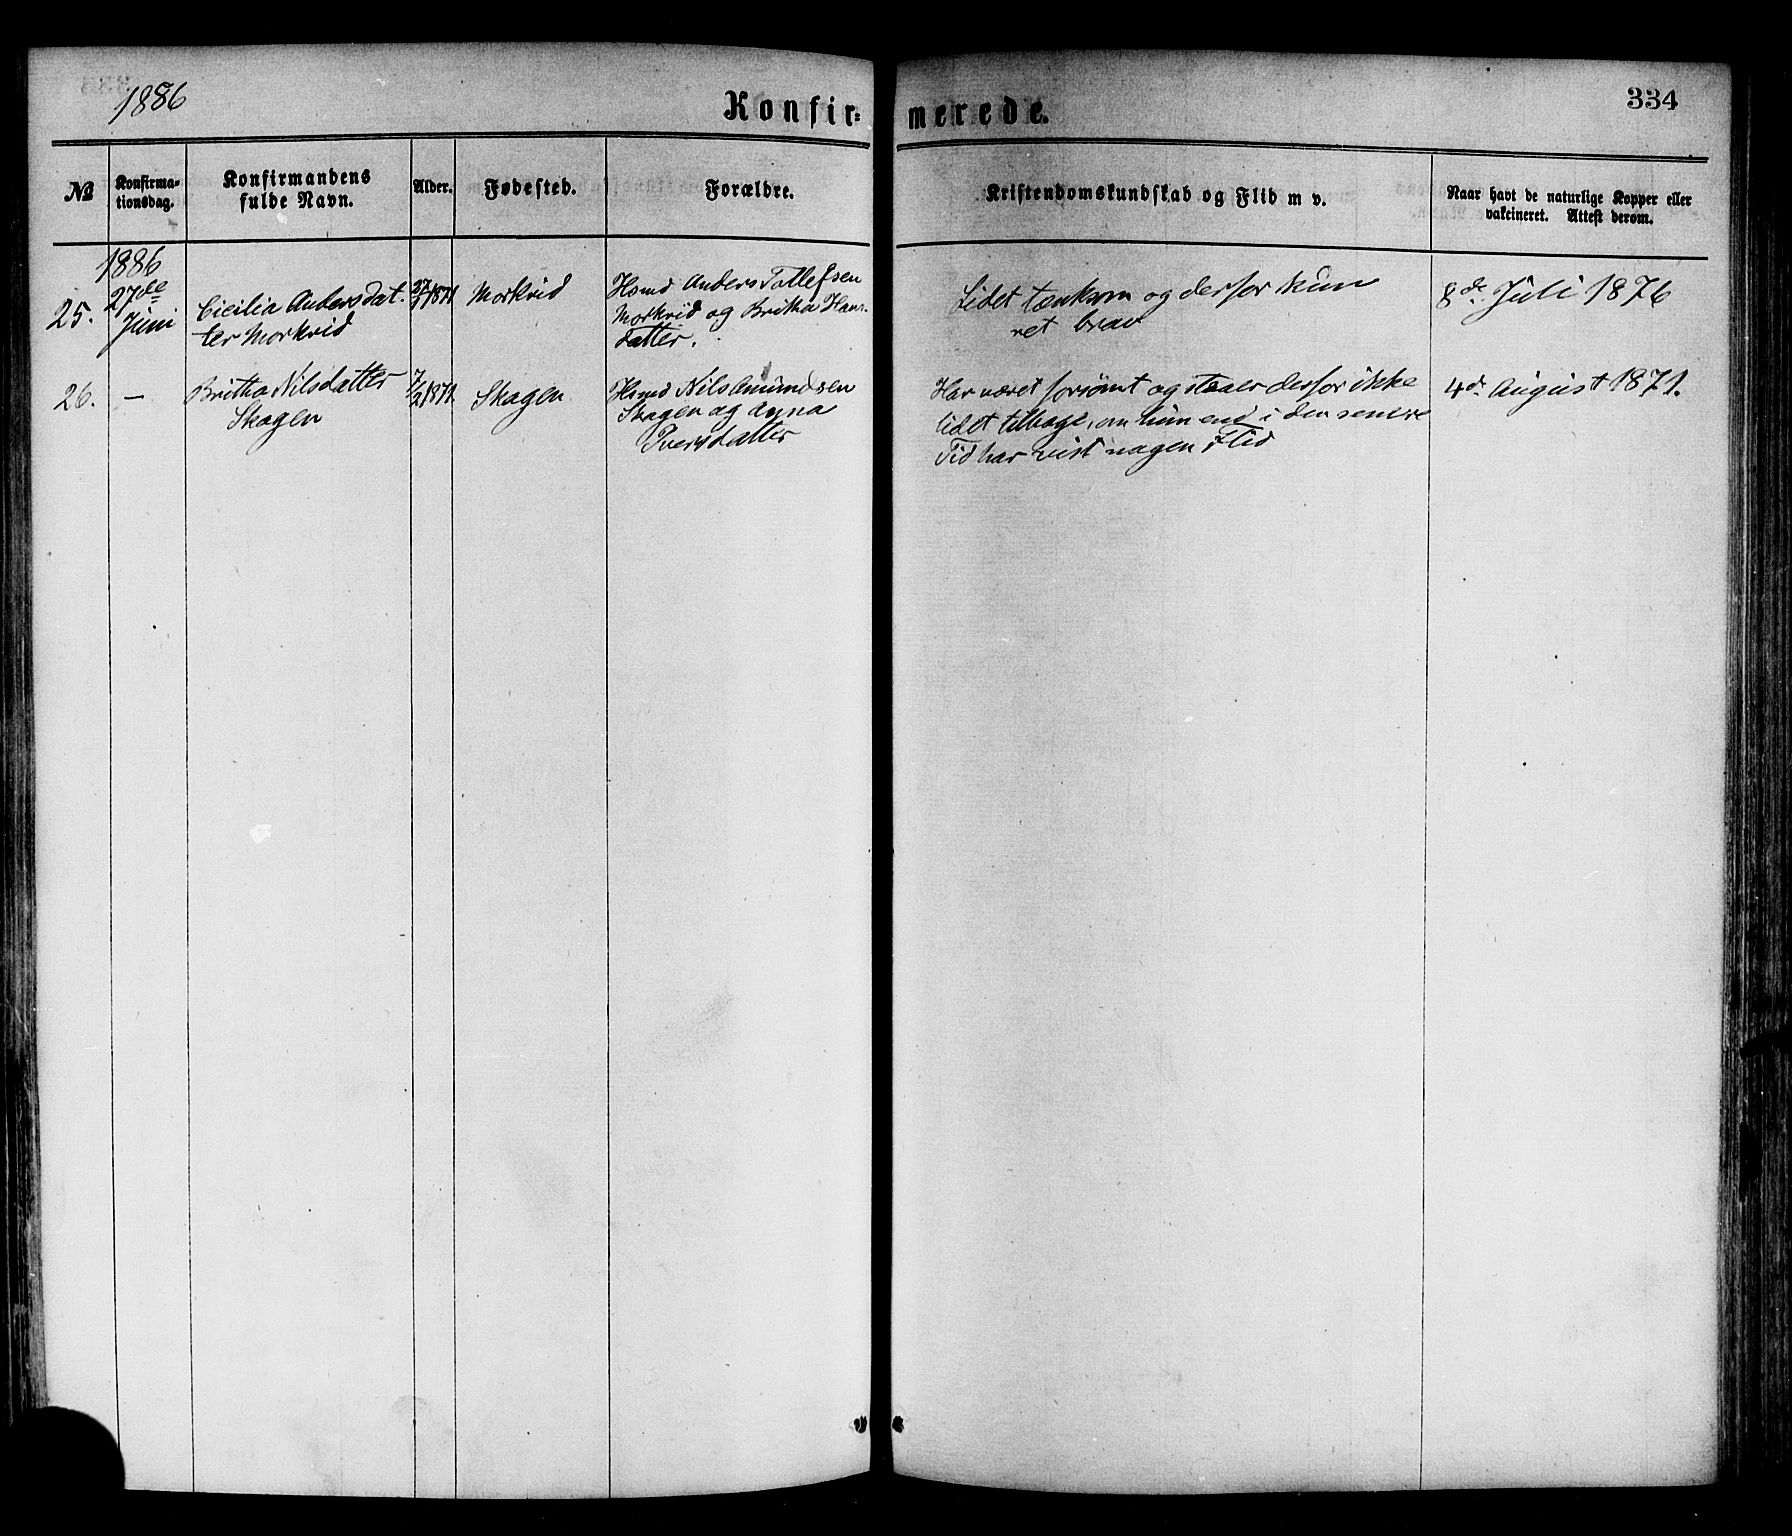 1886
Konfir=
merede.
334
No
Konfirma-
tionsdag.
Konfirmandens
fulde Navn.
Alder.
Fødested.
Forældre.
Kristendomskundskab og Flid m v.
Naar havt de naturlige Kopper eller
vakcineret. Attest derom.
1886
25.
27de
Juni
Cicilia Andersdat-
ter Morkvid
1871
Morkvid
Hsmd Anders Tollefsen
Morkvid og Britha Hans-
datter.
Lidet tænksom og derfor kun
ret brav
8de Juli 1876
26.
—
Britha Nilsdatter
Skagen
7/2 1871
Skagen
Hsmd Nils Amundsen
Skagen og
Iversdatter
Har været forsømt og staaer derfor ikke
lidet tilbage, om hun end i den senere
Tid har vist nogen Flid
4de August 1871.